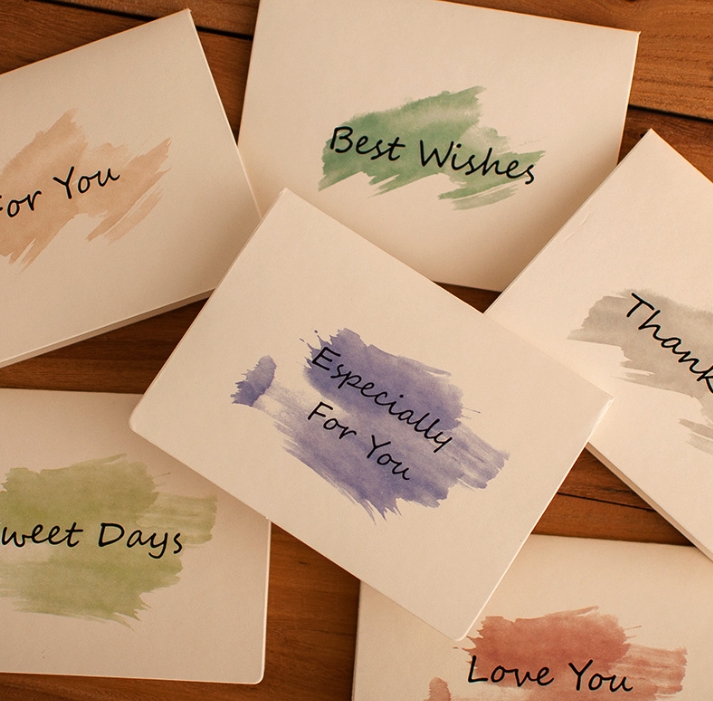 For You
Best Wishes
Thank
Especially
For You
weet Days
Love You